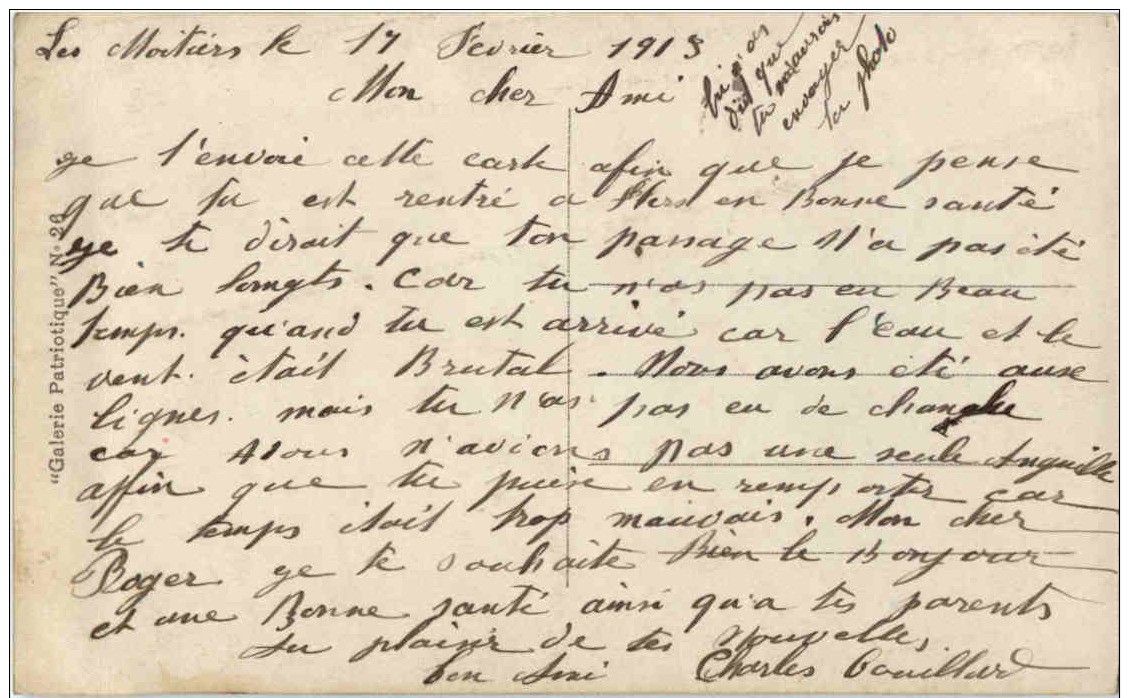 Les Moitiers le 17 Fevrier 1915
Mon cher Ami
tu n'as
dit que
tu
envoyer
ta photo
ge t'envoie cette carte afin que je pense
que tu est rentré a en Bonne santé
ge te dirait que ton passage N'a pas été
Bien longts. Car tu n'as pas eu Beau
temps. qu'and tu est arrivé car l'eau et le
vent. était Brutal. Nous avons été aux
lignes. mais tu N'as pas eu de chanche
car Nous n'avions pas une seule Anguille
affin que tu puise en remporter car
le temps était trop mauvais. Mon cher
Roger ge te souhaite Bien le Bonjour
et une Bonne santé ainsi qu'a tes parents
Au plaisir de tes Nouvelles,
ton Ami Charles Couillard
"Galerie Patriotique" N° 26